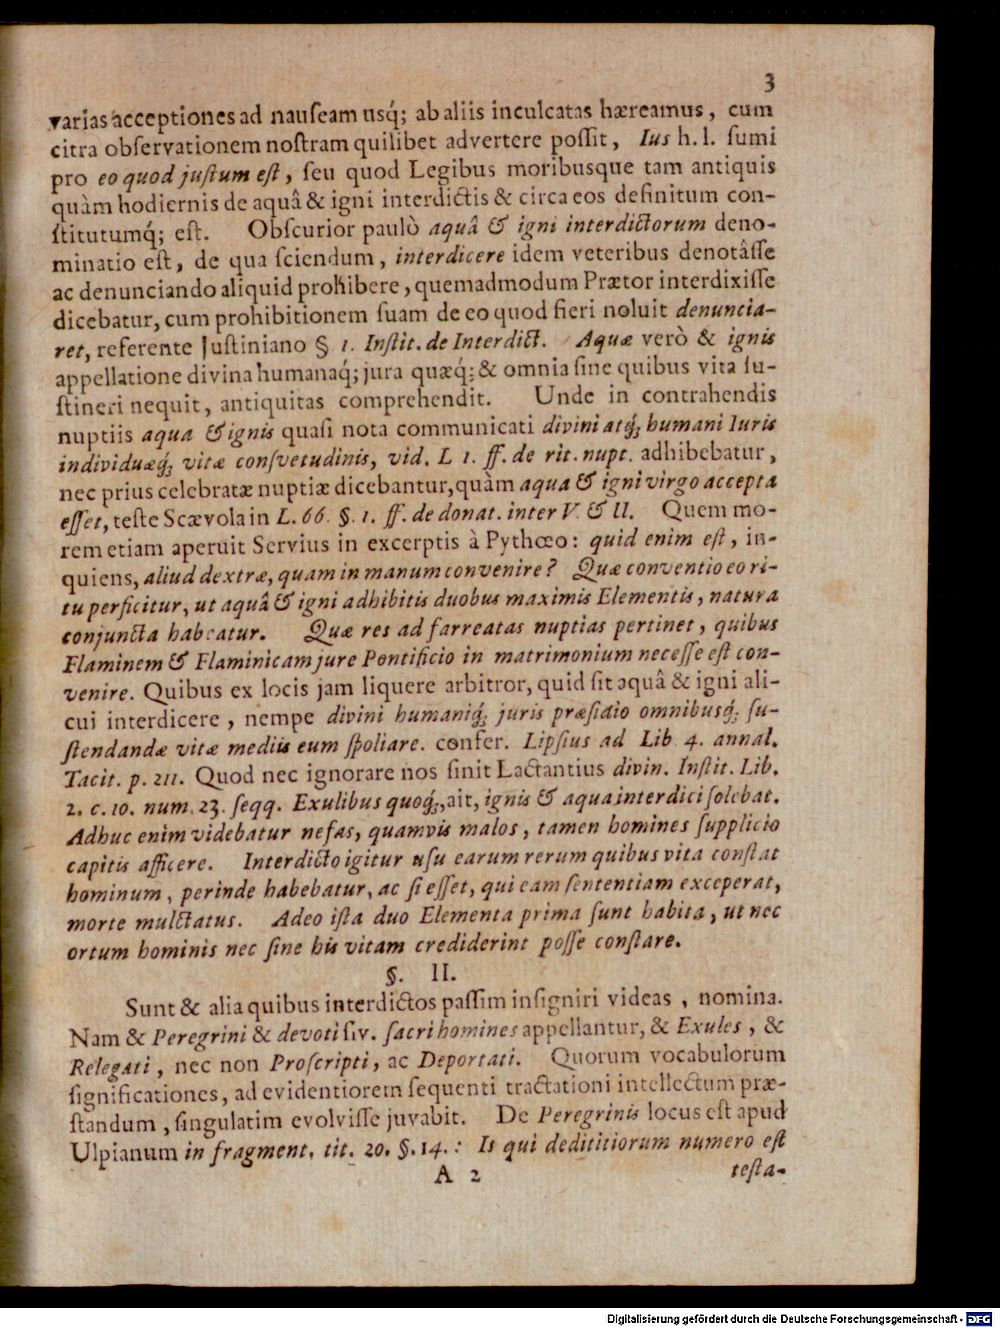 3
varias acceptiones ad nauſeam usq́; ab aliis inculcatas hæreamus, cum
citra obſervationem noſtram quilibet advertere poſſit, Ius h. l. ſumi
pro eo quod juſtum eſt, ſeu quod Legibus moribusque tam antiquis
quàm hodiernis de aquâ & igni interdictis & circa eos definitum con-
ſtitutumq́; eſt. Obſcurior paulò aquâ & igni interdictorum deno-
minatio eſt, de qua ſciendum, interdicere idem veteribus denotâſſe
ac denunciando aliquid prohibere, quemadmodum Prætor interdixiſſe
dicebatur, cum prohibitionem ſuam de eo quod fieri noluit denuncia-
ret, referente Juſtiniano § 1. Inſtit. de Interdict. Aquæ verò & ignis
appellatione divina humanaq́; jura quæq́; & omnia ſine quibus vita ſu-
ſtineri nequit, antiquitas comprehendit. Unde in contrahendis
nuptiis aqua & ignis quaſi nota communicati divini atq́; humani Iuris
individuæq́; vitæ conſvetudinis, vid. L 1. ff. de rit. nupt. adhibebatur,
nec prius celebratæ nuptiæ dicebantur, quàm aqua & igni virgo accepta
eſſet, teſte Scævola in L. 66. §. 1. ff. de donat. inter V. & U. Quem mo-
rem etiam aperuit Servius in excerptis à Pythœo: quid enim eſt, in-
quiens, aliud dextræ, quam in manum convenire? Quæ conventio eo ri-
tu perficitur, ut aquâ & igni adhibitis duobus maximis Elementis, natura
conjuncta habeatur. Quæ res ad farreatas nuptias pertinet, quibus
Flaminem & Flaminicam jure Pontificio in matrimonium neceſſe eſt con-
venire. Quibus ex locis jam liquere arbitror, quid ſit aquâ & igni ali-
cui interdicere, nempe divini humaniq́; juris præſidio omnibusq́; ſu-
ſtendandæ vitæ mediis eum ſpoliare. confer. Lipſius ad Lib. 4. annal.
Tacit. p. 211. Quod nec ignorare nos ſinit Lactantius divin. Inſtit. Lib.
2. c. 10. num. 23. ſeqq. Exulibus quoq́;, ait, ignis & aqua interdici ſolebat.
Adhuc enim videbatur nefas, quamvis malos, tamen homines ſupplicio
capitis afficere. Interdicto igitur uſu earum rerum quibus vita conſtat
hominum, perinde habebatur, ac ſi eſſet, qui eam ſententiam exceperat,
morte mulctatus. Adeo iſta duo Elementa prima ſunt habita, ut nec
ortum hominis nec ſine his vitam crediderint poſſe conſtare.
§. II.
Sunt & alia quibus interdictos paſſim inſigniri videas, nomina.
Nam & Peregrini & devoti ſiv. ſacri homines appellantur, & Exules, &
Relegati, nec non Proſcripti, ac Deportati. Quorum vocabulorum
ſignificationes, ad evidentiorem ſequenti tractationi intellectum præ-
ſtandum, ſingulatim evolviſſe juvabit. De Peregrinis locus eſt apud
Ulpianum in fragment. tit. 20. §. 14.: Is qui dedititiorum numero eſt
A 2 teſta-
Digitalisierung gefördert durch die Deutsche Forschungsgemeinschaft - DFG